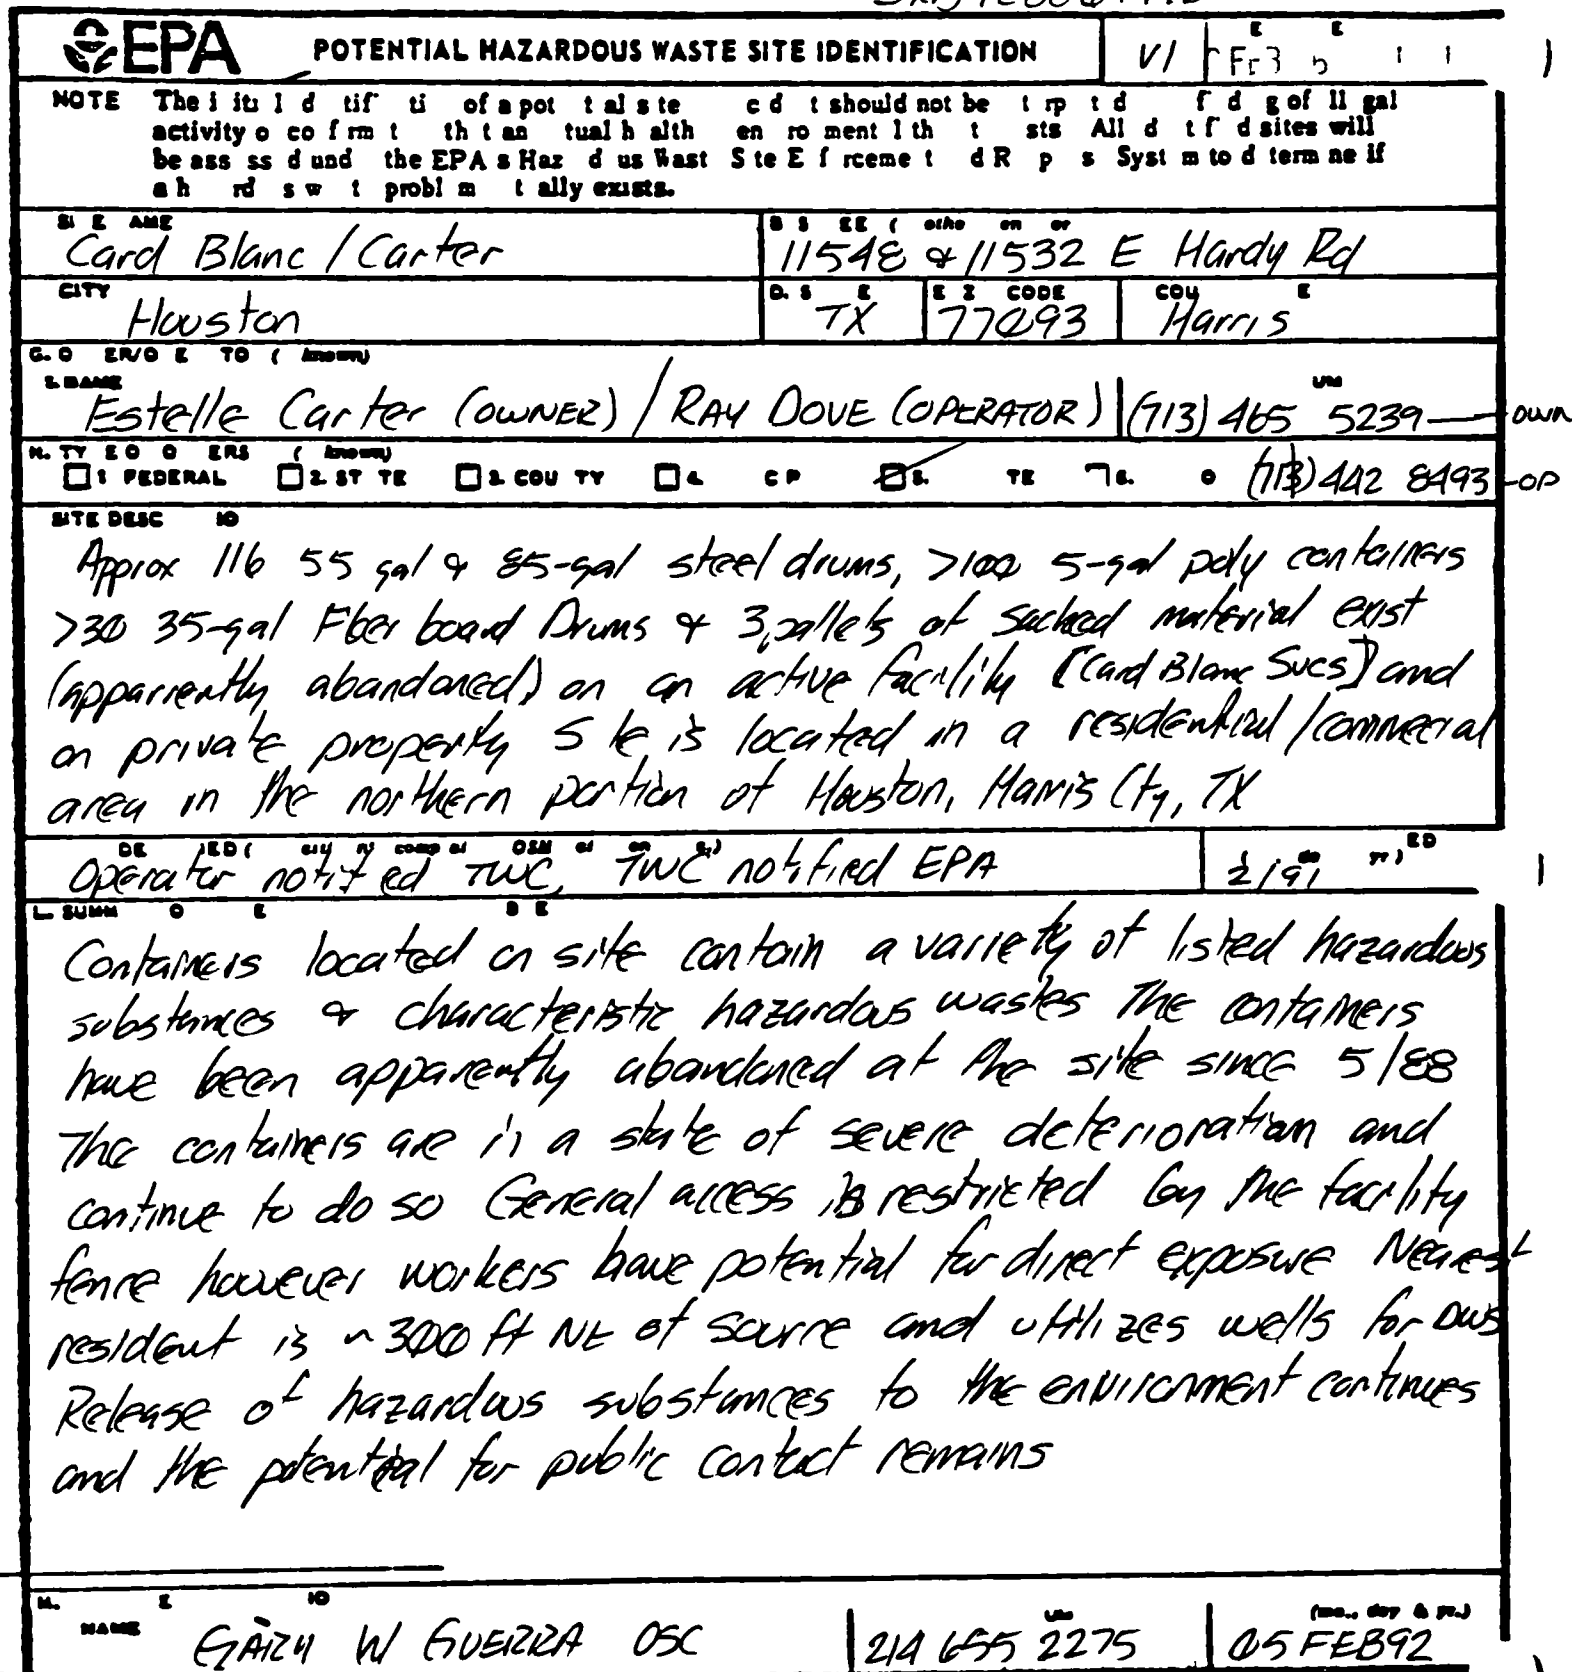 EPA POTENTIAL HAZARDOUS WASTE SITE IDENTIFICATION VI
NOTE The i iti l d tif ti of a pot t al s te c d t should not be t rp t d f d g of ll gal
activity o co f rm t th t an tual h alth en ro ment l th t sts All d t f d sites will
be ass ss d und the EPA s Haz d us Wast S te E f rceme t d R p s Syst m to d term ne if
a h rd s w t probl m t ally exists.
SI E AME
Card Blanc / Carter 11548 & 11532 E Hardy Rd
CITY D. S E E Z CODE COU E
Houston TX 77093 Harris
G. O ER/O E TO ( known)
1. NAME UM
Estelle Carter (OWNER) / RAY DOVE (OPERATOR) (713) 465 5239 — own
H. TY E O O ERS ( known)
1 FEDERAL 2. ST TE 3. COU TY 4. C P 5. TE 6. O (713) 442 8493 - OP
SITE DESC IO
Approx 116 55 gal & 85-gal steel drums, >100 5-gal poly containers
>30 35-gal Fiber board Drums & 3 pallets of sacked material exist
(apparrently abandoned) on an active facility [Card Blanc Svcs] and
on private property S te is located in a residential/commercial
area in the northern portion of Houston, Harris Cty, TX
Operator notified TWC, TWC notified EPA 2/91
L. SUMM O E B E
Containers located on site contain a variety of listed hazardous
substances & characteristic hazardous wastes The containers
have been apparently abandoned at the site since 5/88
The containers are in a state of severe deterioration and
continue to do so General access is restricted by the facility
fence however workers have potential for direct exposure Nearest
resident is ~300 ft NE of source and utilizes wells for DWS
Release of hazardous substances to the environment continues
and the potential for public contact remains
M. E IO
NAME UM (mo., day & yr.)
GARY W GUERRA OSC 214 655 2275 05 FEB92